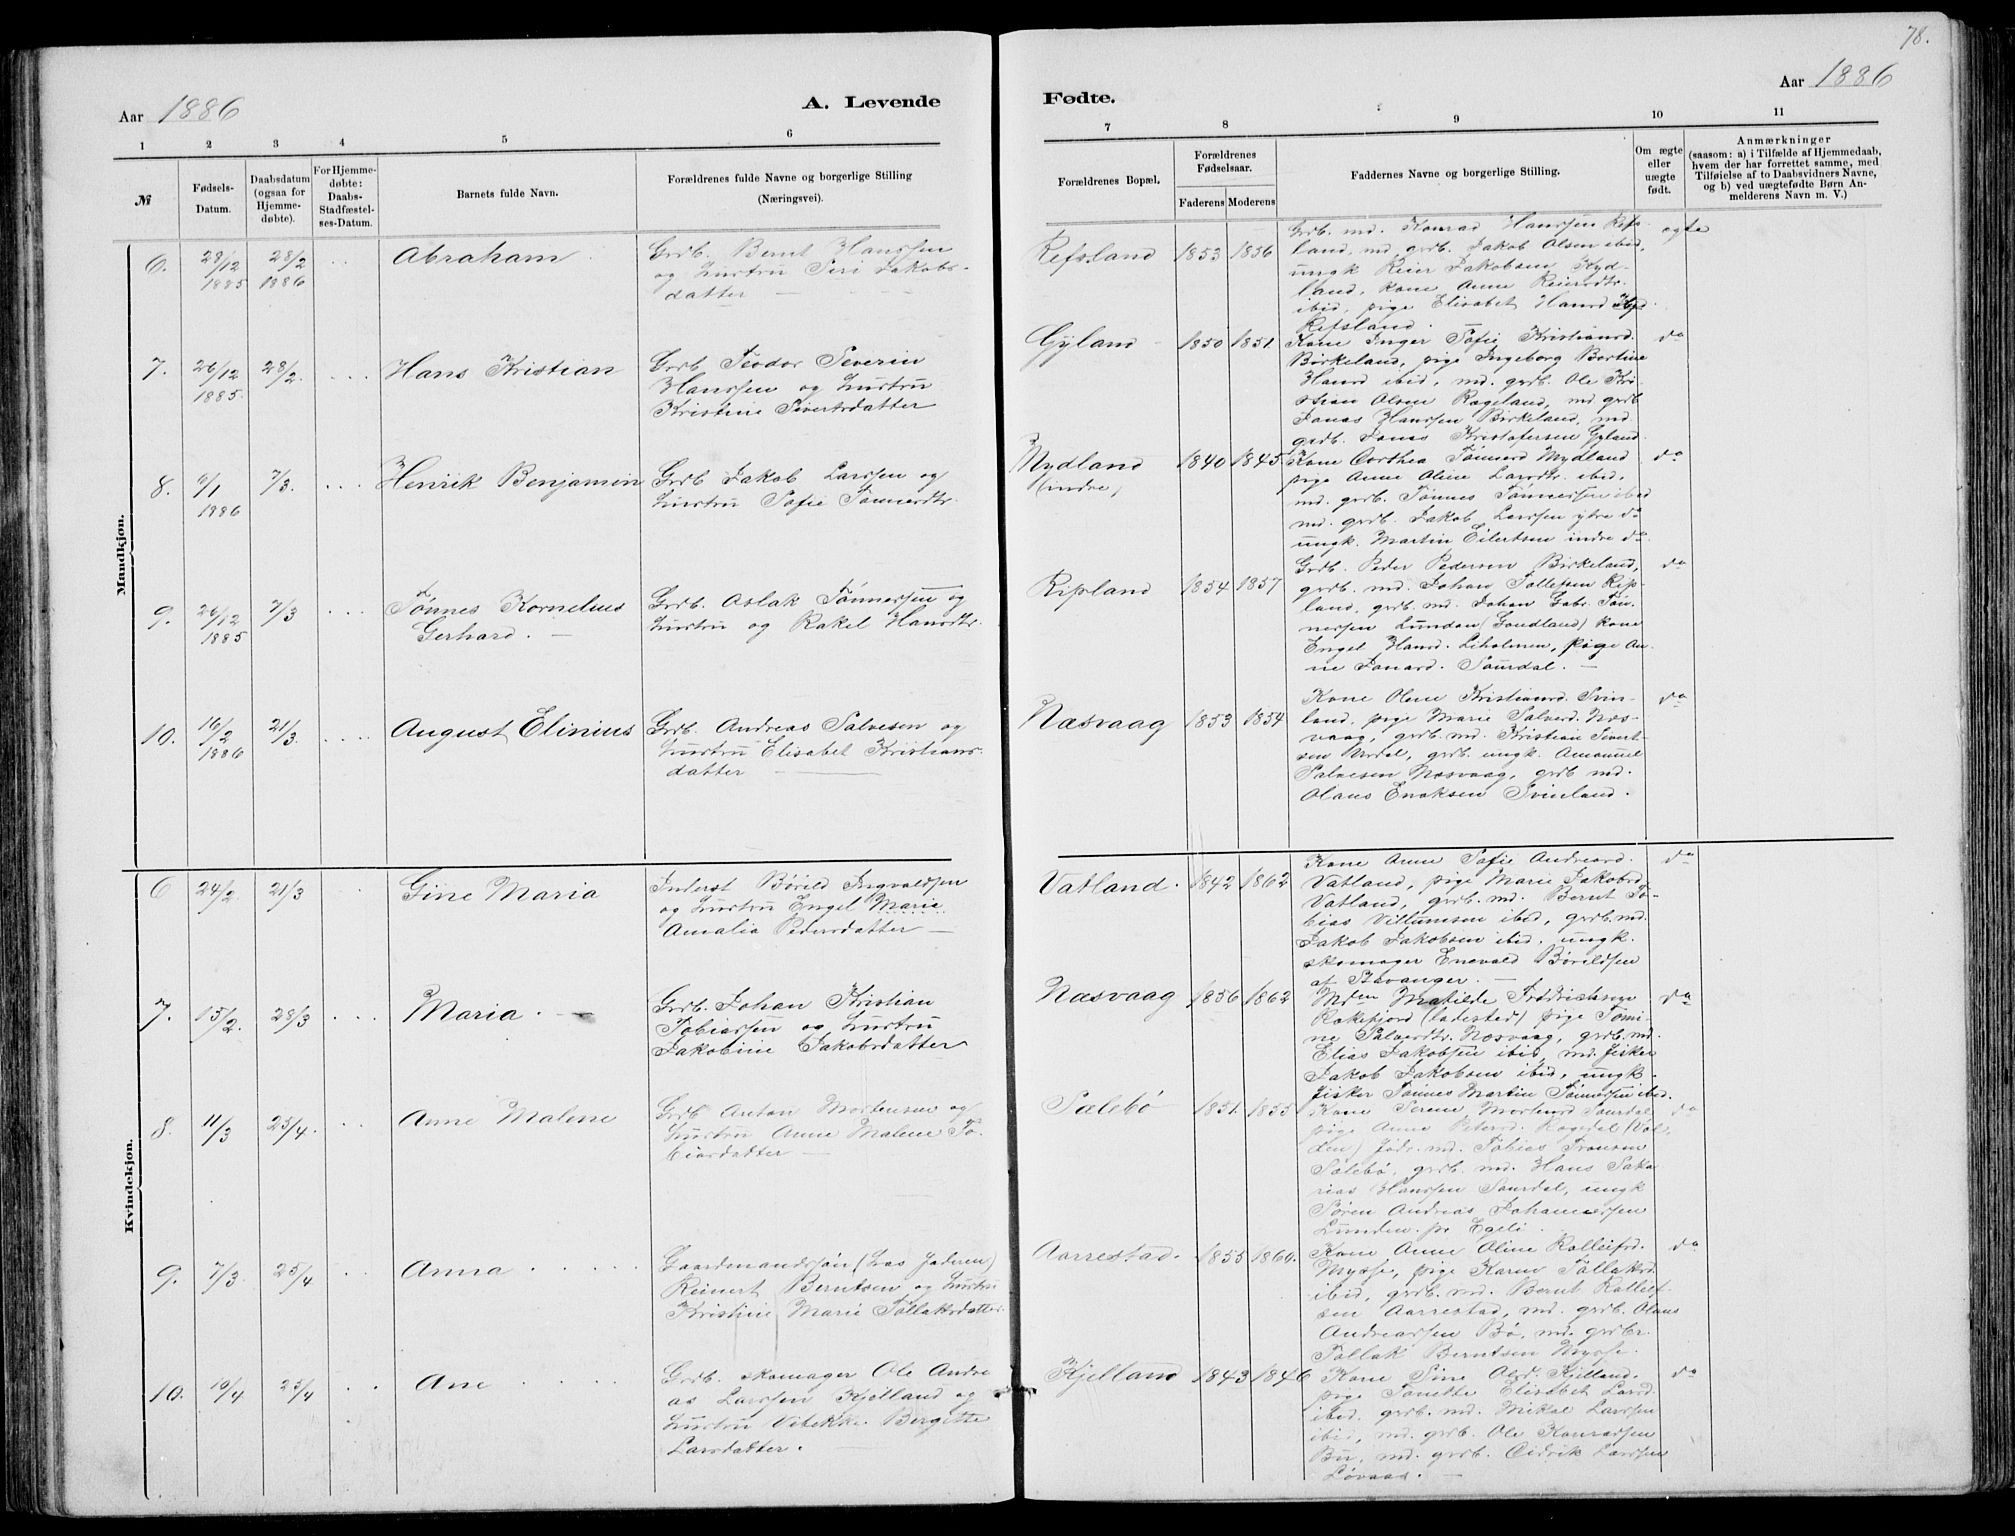 78.
Aar 1886
A. Levende
Fødte.
Aar 1886
1 2 3 4 5 6
7 8 9 10 11
№
Fødsels-
Datum.
Daabsdatum
(ogsaa for
Hjemme-
døbte).
For Hjemme-
døbte:
Daabs-
Stadfæstel-
ses-Datum.
Barnets fulde Navn.
Forældrenes fulde Navne og borgerlige Stilling
(Næringsvei).
Forældrenes Bopæl.
Forældrenes
Fødselsaar.
Faderens Moderens
Faddernes Navne og borgerlige Stilling.
Om ægte
eller
uægte
født.
Anmærkninger
(saasom: a) i Tilfælde af Hjemmedaab,
hvem der har forrettet samme, med
Tilføielse af to Daabsvidners Navne,
og b) ved uægtefødte Børn An-
melderens Navn m. V.)
Mandkjøn.
6. 28/12 1885 28/2 1886 Abraham
Grdb. Bernt Hanssen
og hustru Seri Jakobs-
datter
Refsland 1853 1856
Grdb. md. Konrad Hanssen Refs-
land, md. grdb. Jakob Olsen ibid,
ungk Reier Jakobsen Kyd-
land, kone Anne Reiersdtr.
ibid, pige Elisabet Hansd
Refsland.
ægte
7. 26/12 1885. 28/2. Hans Kristian
Grdb. Teodor Severin
Hanssen og hustru
Kristine Sivertsdatter
Gyland 1850 1851
Kone Inger Tofie Kristiansd.
Birkeland, pige Ingeborg Bertine
Hansd ibid, md. grdb. Ole Kri-
stian Olsen Rægeland, md grdb
Jonas Hanssen Birkeland, md
grdb. Jonas Kristofersen Gyland.
do
8. 6/1 1886 7/3. Henrik Benjamin
Grdb Jakob Larssen og
hustru Tofie Tønnesdtr.
Mydland
(indre)
1840 1845
Kone Dorthea Tønnesd Mydland
pige Anne Oline Larsdtr. ibid,
md. grdb. Tønnes Tønnessen ibid
md. grdb. Jakob Larssen ytre do
ungk. Martin Eilertsen indre do
do
9. 26/12 1885 7/3 Tønnes Kornelius
Gerhard.
Grdb. Aslak Tønnessen og
hustru og Rakel Hansdtr.
Ripland 1854 1857
Grdb. Peder Pedersen Birkeland,
grdb. md. Johan Tollefsen Rip-
land, grdb. md. Johan Gabr. Tøn-
nessen Lunden (Gondland) kone
Engel Hansd. Liholmen, pige An-
ne Jonasd. Sourdal.
do
10. 16/2 1886 21/3. August Elinius
Grdb. Andreas Salvesen og
hustru Elisabet Kristians-
datter
Næsvaag 1853 1854
Kone Olene Kristiansd. Svin-
land, pige Marie Salvesd. Næs-
vaag, grdb. md. Kristian Sivert-
sen Urdal, grdb. ungk. Amanuel
Salvesen Næsvaag, grdb md.
Olaus Enoksen Svinland.
do
Kvindekjøn.
6 24/2. 21/3 Gine Maria
Inderst Børild Ingvaldsen
og hustru Engel Marie
Amalia Pedersdatter
Vatland. 1842 1862
Kone Anne Tofie Andreasd.
Vatland, pige Marie Jakobsd
Vatland, grdb. md. Bernt To-
bias Villumsen ibid, grdb. md.
Jakob Jakobsen ibid, ungk.
skomager Enevald Børildsen
af Stavanger.
do
7. 15/2. 28/3 Maria.
Grdb. Johan Kristian
Tobiassen og hustru
Jakobine Jakobsdatter
Næsvaag 1856 1862
Mdm Matilde Fredrichsen
Rækefjord (ladested) pige Tomi-
ne Salvesdtr. Næsvaag, grdb. md.
Elias Jakobsen ibid, md. fisker
Jakob Jakobsen ibid, ungk.
fisker Tønnes Martin Tønnessen ibid.
do
8. 11/3 25/4. Anne Malene
Grdb Anton Mortensen og
hustru Anne Malene To-
biasdatter
Sælebø 1851. 1855
Kone Serene Mortensd Sourdal
pige Anne Petersd. Rogsdal (Val-
len) fodr. md. Tobias Fransen
Sælebø, grdb. md. Hans Saka-
rias Hanssen Sourdal, ungk
Søren Andreas Johannessen
Lunden pr Egeli.
do
9. 7/3. 25/4 Anna
Gaardmandssøn (Los Jaderen)
Reinert Berntsen og hustru
Kristine Marie Tollaksdatter.
Aarrestad. 1855 1860.
Kone Anne Oline Rolleifsd.
Mysse, pige Karen Tollaksd.
ibid, grdb. md. Bernt Rolleif-
sen Aarrestad, md. grdb. Olaus
Andreassen Bø, md. grdbr.
Tollak Berntsen Mysse.
do
10. 10/4 25/4 Ane
Grdb. skomager Ole Andre
as Larssen Kjelland og
hustru Vibekke Bergitte
Larsdatter.
Kjelland 1843 1846
Kone Sine Olsd. Kjelland,
pige Tonette Elisabet Larsd.
ibid. grdb. md. Mikal Larssen
ibid, md. grdb. Ole Konradsen
Bu, md. grdb. Didrik Larssen
Løvaas.
do